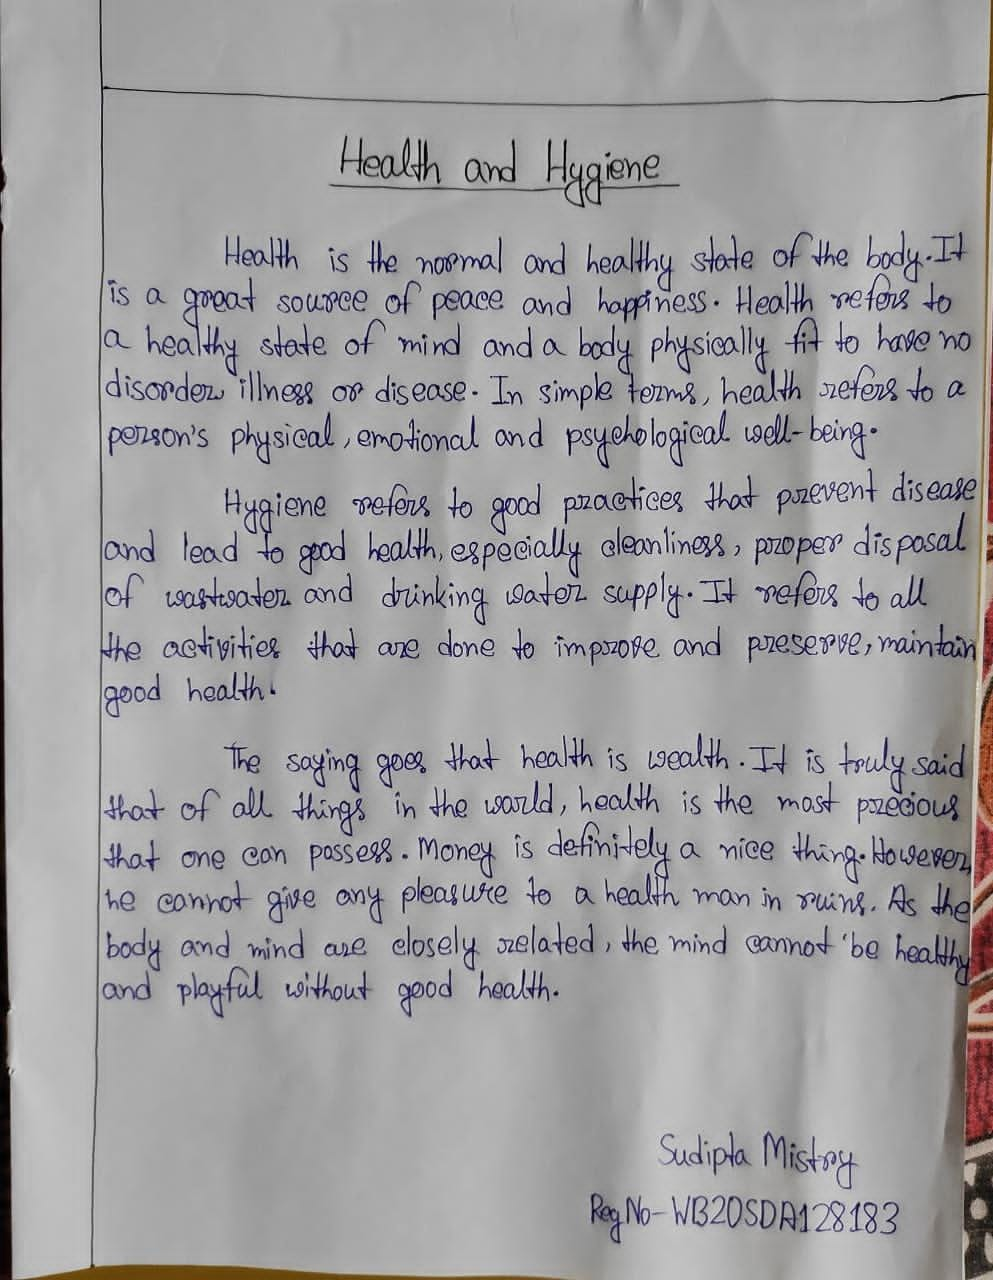 Health and Hygiene
Health is the normal and healthy state of the body. It
is a great source of peace and happiness. Health refers to
a healthy state of mind and a body physically fit to have no
disorder, illness or disease. In simple terms, health refers to a
person's physical, emotional and psychological well-being.
Hygiene refers to good practices that prevent disease
and lead to good health, especially cleanliness, proper disposal
of wastwater and drinking water supply. It refers to all
the activities that are done to improve and preserve, maintain
good health.
The saying goes that health is wealth. It is truly said
that of all things in the world, health is the most precious
that one can possess. Money is definitely a nice thing. However,
he cannot give any pleasure to a health man in ruins. As the
body and mind are closely related, the mind cannot be healthy
and playful without good health.
Sudipta Mistry
Reg No- WB20SDA128183